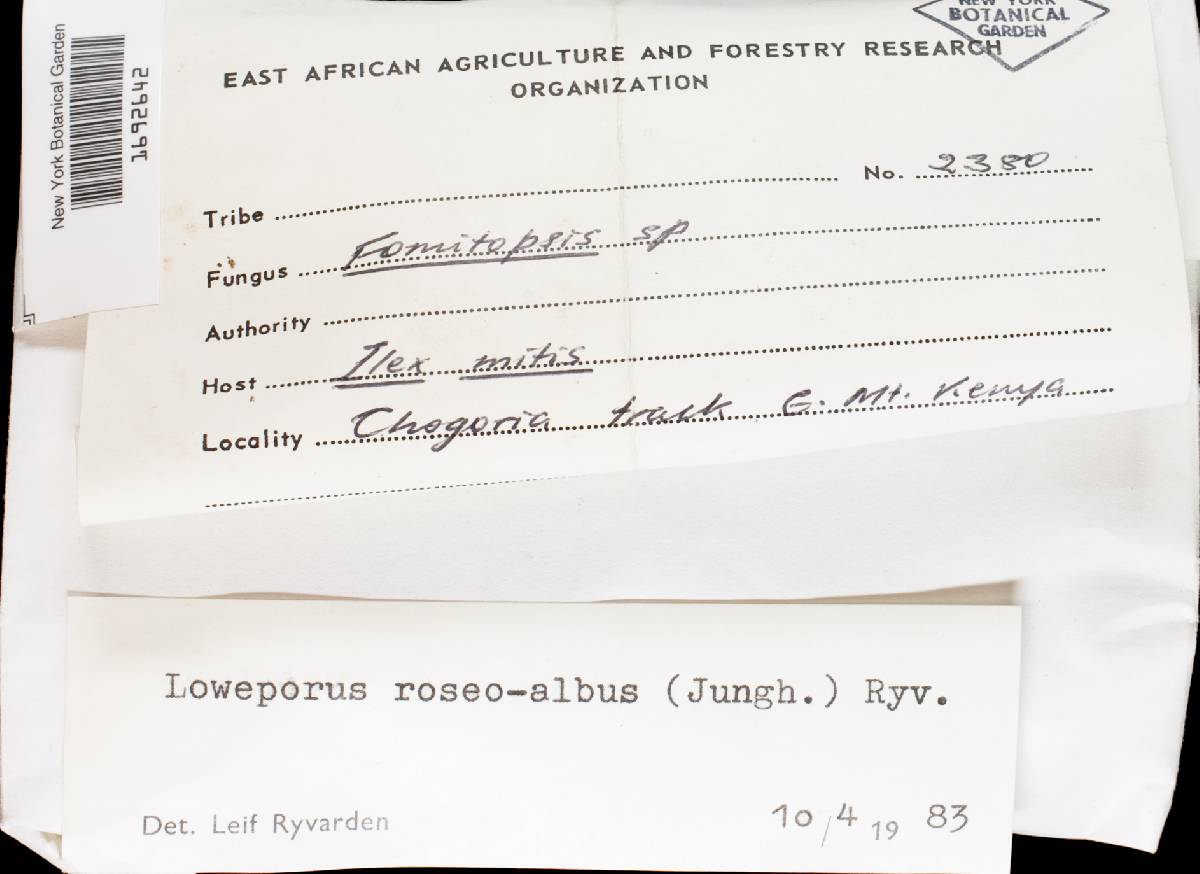 New York Botanical Garden
1692642
NEW YORK
BOTANICAL
GARDEN
EAST AFRICAN AGRICULTURE AND FORESTRY RESEARCH
ORGANIZATION
No. 2380
Tribe
Fungus Fomitopsis sp
Authority
Host Ilex mitis
Locality Chogoria track E. Mt. Kenya
Loweporus roseo-albus (Jungh.) Ryv.
Det. Leif Ryvarden 10/4 19 83